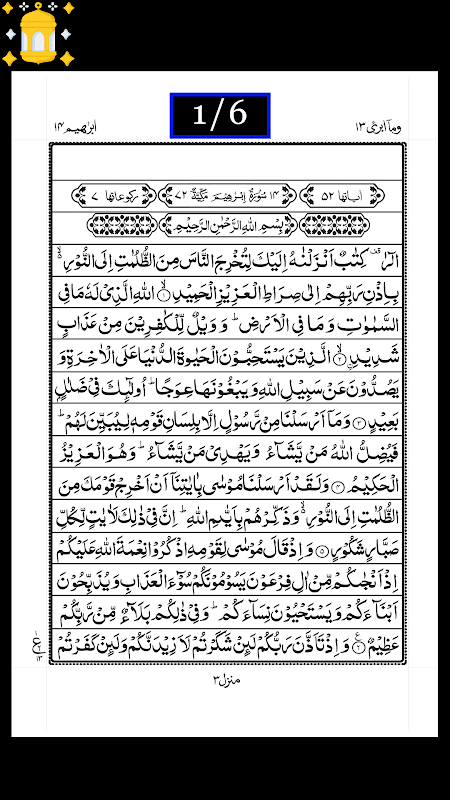 1/6
وما ابرئ ۱۳
ابرٰهیم ۱۴
اٰیاتها ۵۲ ۱۴ سُوْرَةُ اِبْرٰهِيْمَ مَكِّيَّةٌ ۷۲ رکوعاتها ۷
بِسْمِ اللهِ الرَّحْمٰنِ الرَّحِيْمِ
الٓرٰ كِتٰبٌ اَنْزَلْنٰهُ اِلَيْكَ لِتُخْرِجَ النَّاسَ مِنَ الظُّلُمٰتِ اِلَى النُّوْرِ
بِاِذْنِ رَبِّهِمْ اِلٰى صِرَاطِ الْعَزِيْزِ الْحَمِيْدِ ۱ اللهِ الَّذِيْ لَهٗ مَا فِي
السَّمٰوٰتِ وَمَا فِي الْاَرْضِ ؕ وَوَيْلٌ لِّلْكٰفِرِيْنَ مِنْ عَذَابٍ
شَدِيْدِ ۲ الَّذِيْنَ يَسْتَحِبُّوْنَ الْحَيٰوةَ الدُّنْيَا عَلَى الْاٰخِرَةِ وَ
يَصُدُّوْنَ عَنْ سَبِيْلِ اللهِ وَيَبْغُوْنَهَا عِوَجًا ؕ اُولٰٓئِكَ فِيْ ضَلٰلٍۭ
بَعِيْدٍ ۳ وَمَاۤ اَرْسَلْنَا مِنْ رَّسُوْلٍ اِلَّا بِلِسَانِ قَوْمِهٖ لِيُبَيِّنَ لَهُمْ ؕ
فَيُضِلُّ اللهُ مَنْ يَّشَآءُ وَيَهْدِيْ مَنْ يَّشَآءُ ؕ وَهُوَ الْعَزِيْزُ
الْحَكِيْمُ ۴ وَلَقَدْ اَرْسَلْنَا مُوْسٰى بِاٰيٰتِنَاۤ اَنْ اَخْرِجْ قَوْمَكَ مِنَ
الظُّلُمٰتِ اِلَى النُّوْرِ وَذَكِّرْهُمْ بِاَيّٰىمِ اللهِ ؕ اِنَّ فِيْ ذٰلِكَ لَاٰيٰتٍ لِّكُلِّ
صَبَّارٍ شَكُوْرٍ ۵ وَاِذْ قَالَ مُوْسٰى لِقَوْمِهِ اذْكُرُوْا نِعْمَةَ اللهِ عَلَيْكُمْ
اِذْ اَنْجٰىكُمْ مِّنْ اٰلِ فِرْعَوْنَ يَسُوْمُوْنَكُمْ سُوْٓءَ الْعَذَابِ وَيُذَبِّحُوْنَ
اَبْنَآءَكُمْ وَيَسْتَحْيُوْنَ نِسَآءَكُمْ ؕ وَفِيْ ذٰلِكُمْ بَلَآءٌ مِّنْ رَّبِّكُمْ
عَظِيْمٌ ۶ وَاِذْ تَاَذَّنَ رَبُّكُمْ لَئِنْ شَكَرْتُمْ لَاَزِيْدَنَّكُمْ وَلَئِنْ كَفَرْتُمْ
منزل ۳